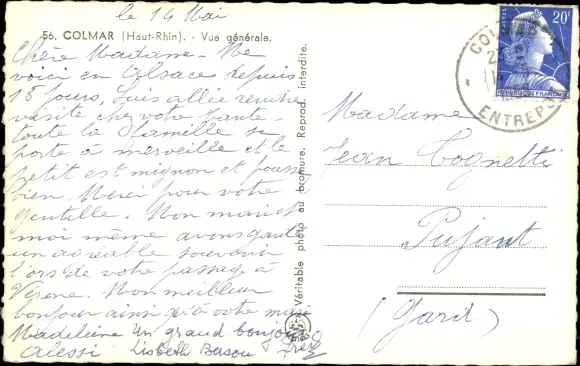 le 14 Mai
56. COLMAR (Haut-Rhin). - Vue générale.
Chère Madame - Me
voici en Alsace depuis
15 jours, suis allée rendre
visite chez votre tante -
toute la famille se
porte à merveille et le
petit est mignon et pousse
bien. Merci pour votre
gentille. Mon mari et
moi même avons gardé
un agréable souvenir
lors de votre passage à
Mon meilleur
bonjour ainsi qu'à votre mari
Madeleine Un grand bonjour
Alessi Lisbeth
Véritable photo au bromure. Reprod. interdite.
20F
POSTES
REPUBLIQUE FRANÇAISE
COLMAR
ENTREPOT
Madame
Jean Tognetti
Pujaut
(Gard)